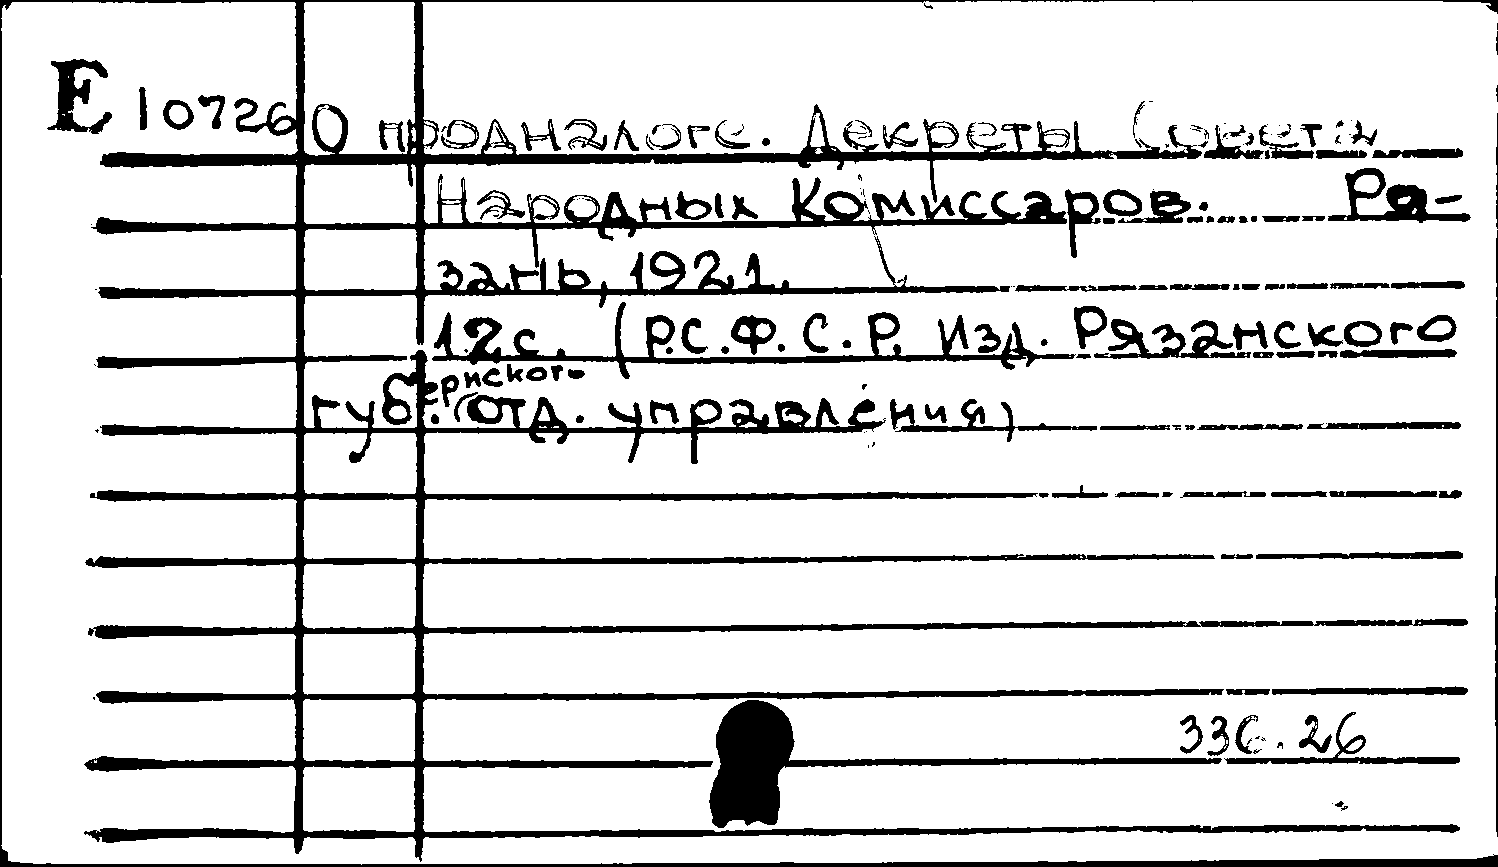 Е 107260 О продналоге. Декреты Совета
Народных Комиссаров. Ря-
зань, 1921.
12 с. (Р.С.Ф.С.Р. Изд. Рязанского
губернского отд. управления)
336.26